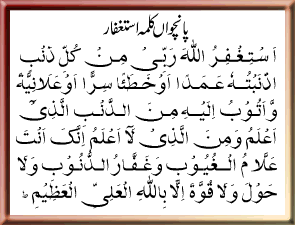 پانچواں کلمہ استغفار
اَسْتَغْفِرُ اللّٰهَ رَبِّىْ مِنْ كُلِّ ذَنْۢبٍ
اَذْنَبْتُهٗ عَمَدًا اَوْ خَطَـًٔا سِرًّا اَوْ عَلَانِيَةً
وَّاَتُوْبُ اِلَيْهِ مِنَ الذَّنْۢبِ الَّذِىْٓ
اَعْلَمُ وَمِنَ الَّذِىْ لَآ اَعْلَمُ اِنَّكَ اَنْتَ
عَلَّامُ الْغُيُوْبِ وَغَفَّارُ الذُّنُوْبِ وَلَا
حَوْلَ وَلَا قُوَّةَ اِلَّا بِاللّٰهِ الْعَلِىِّ الْعَظِيْمِ ؕ